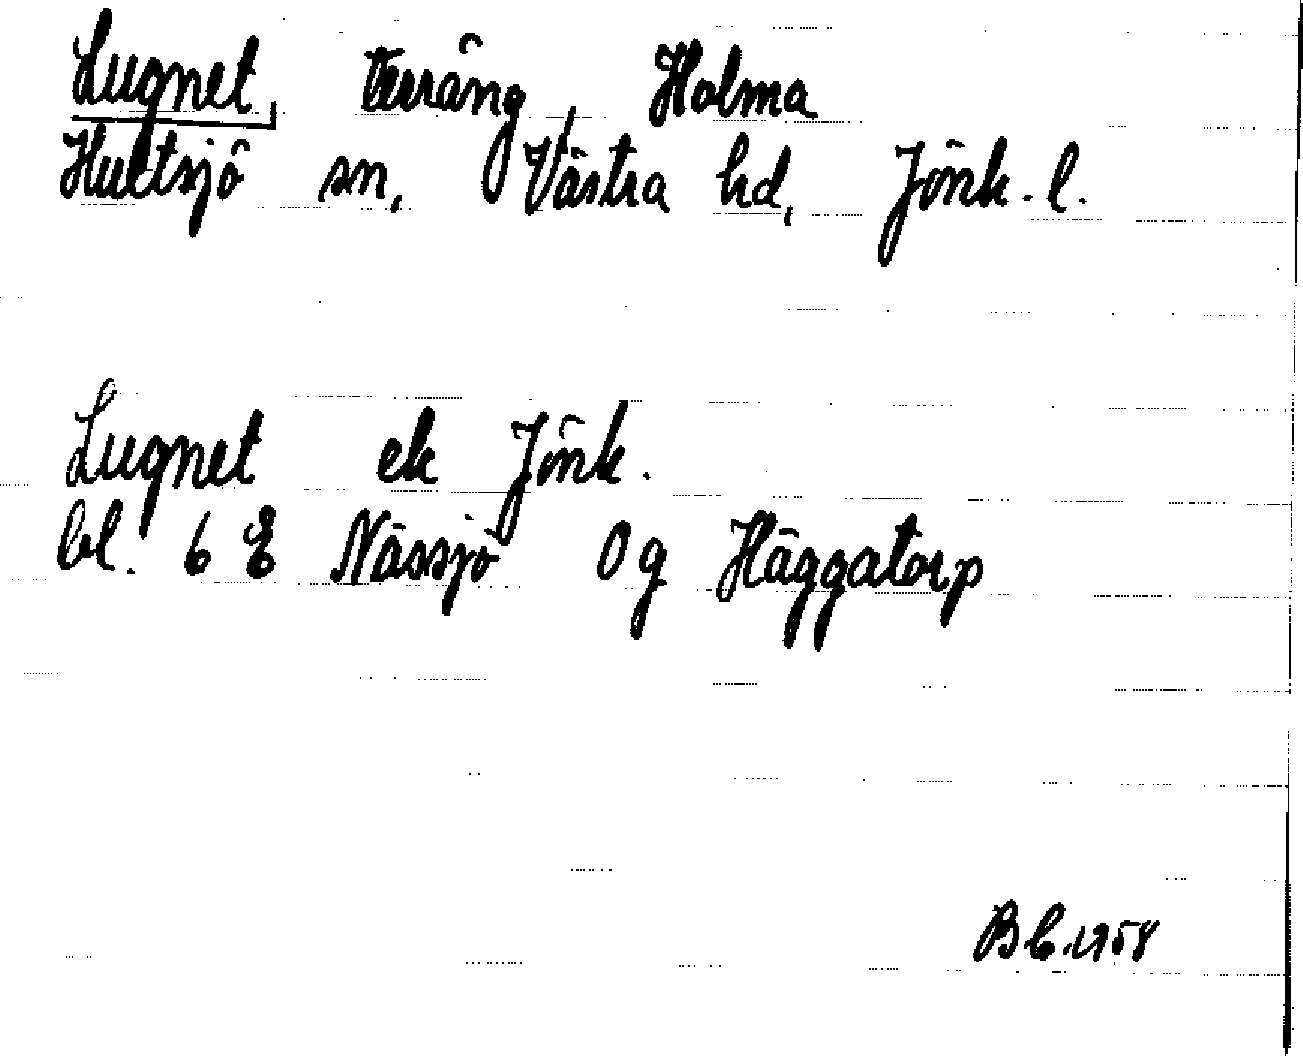 Lugnet, terräng, Holma
Hultsjö sn, Västra hd, Jönk. l.
Lugnet ek Jönk.
bl. 6 E Nässjö 0 g Häggatorp
1958